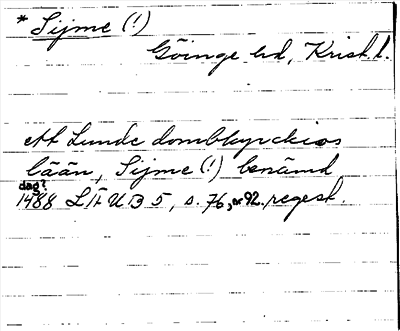 * Sijme (!)
Göinge hd, Krist. l.
ett Lunde dombkyrckios
lään, Sijme (!) benämd
dag?
1488 LÄUB 5, s. 76, nr 92. regest.